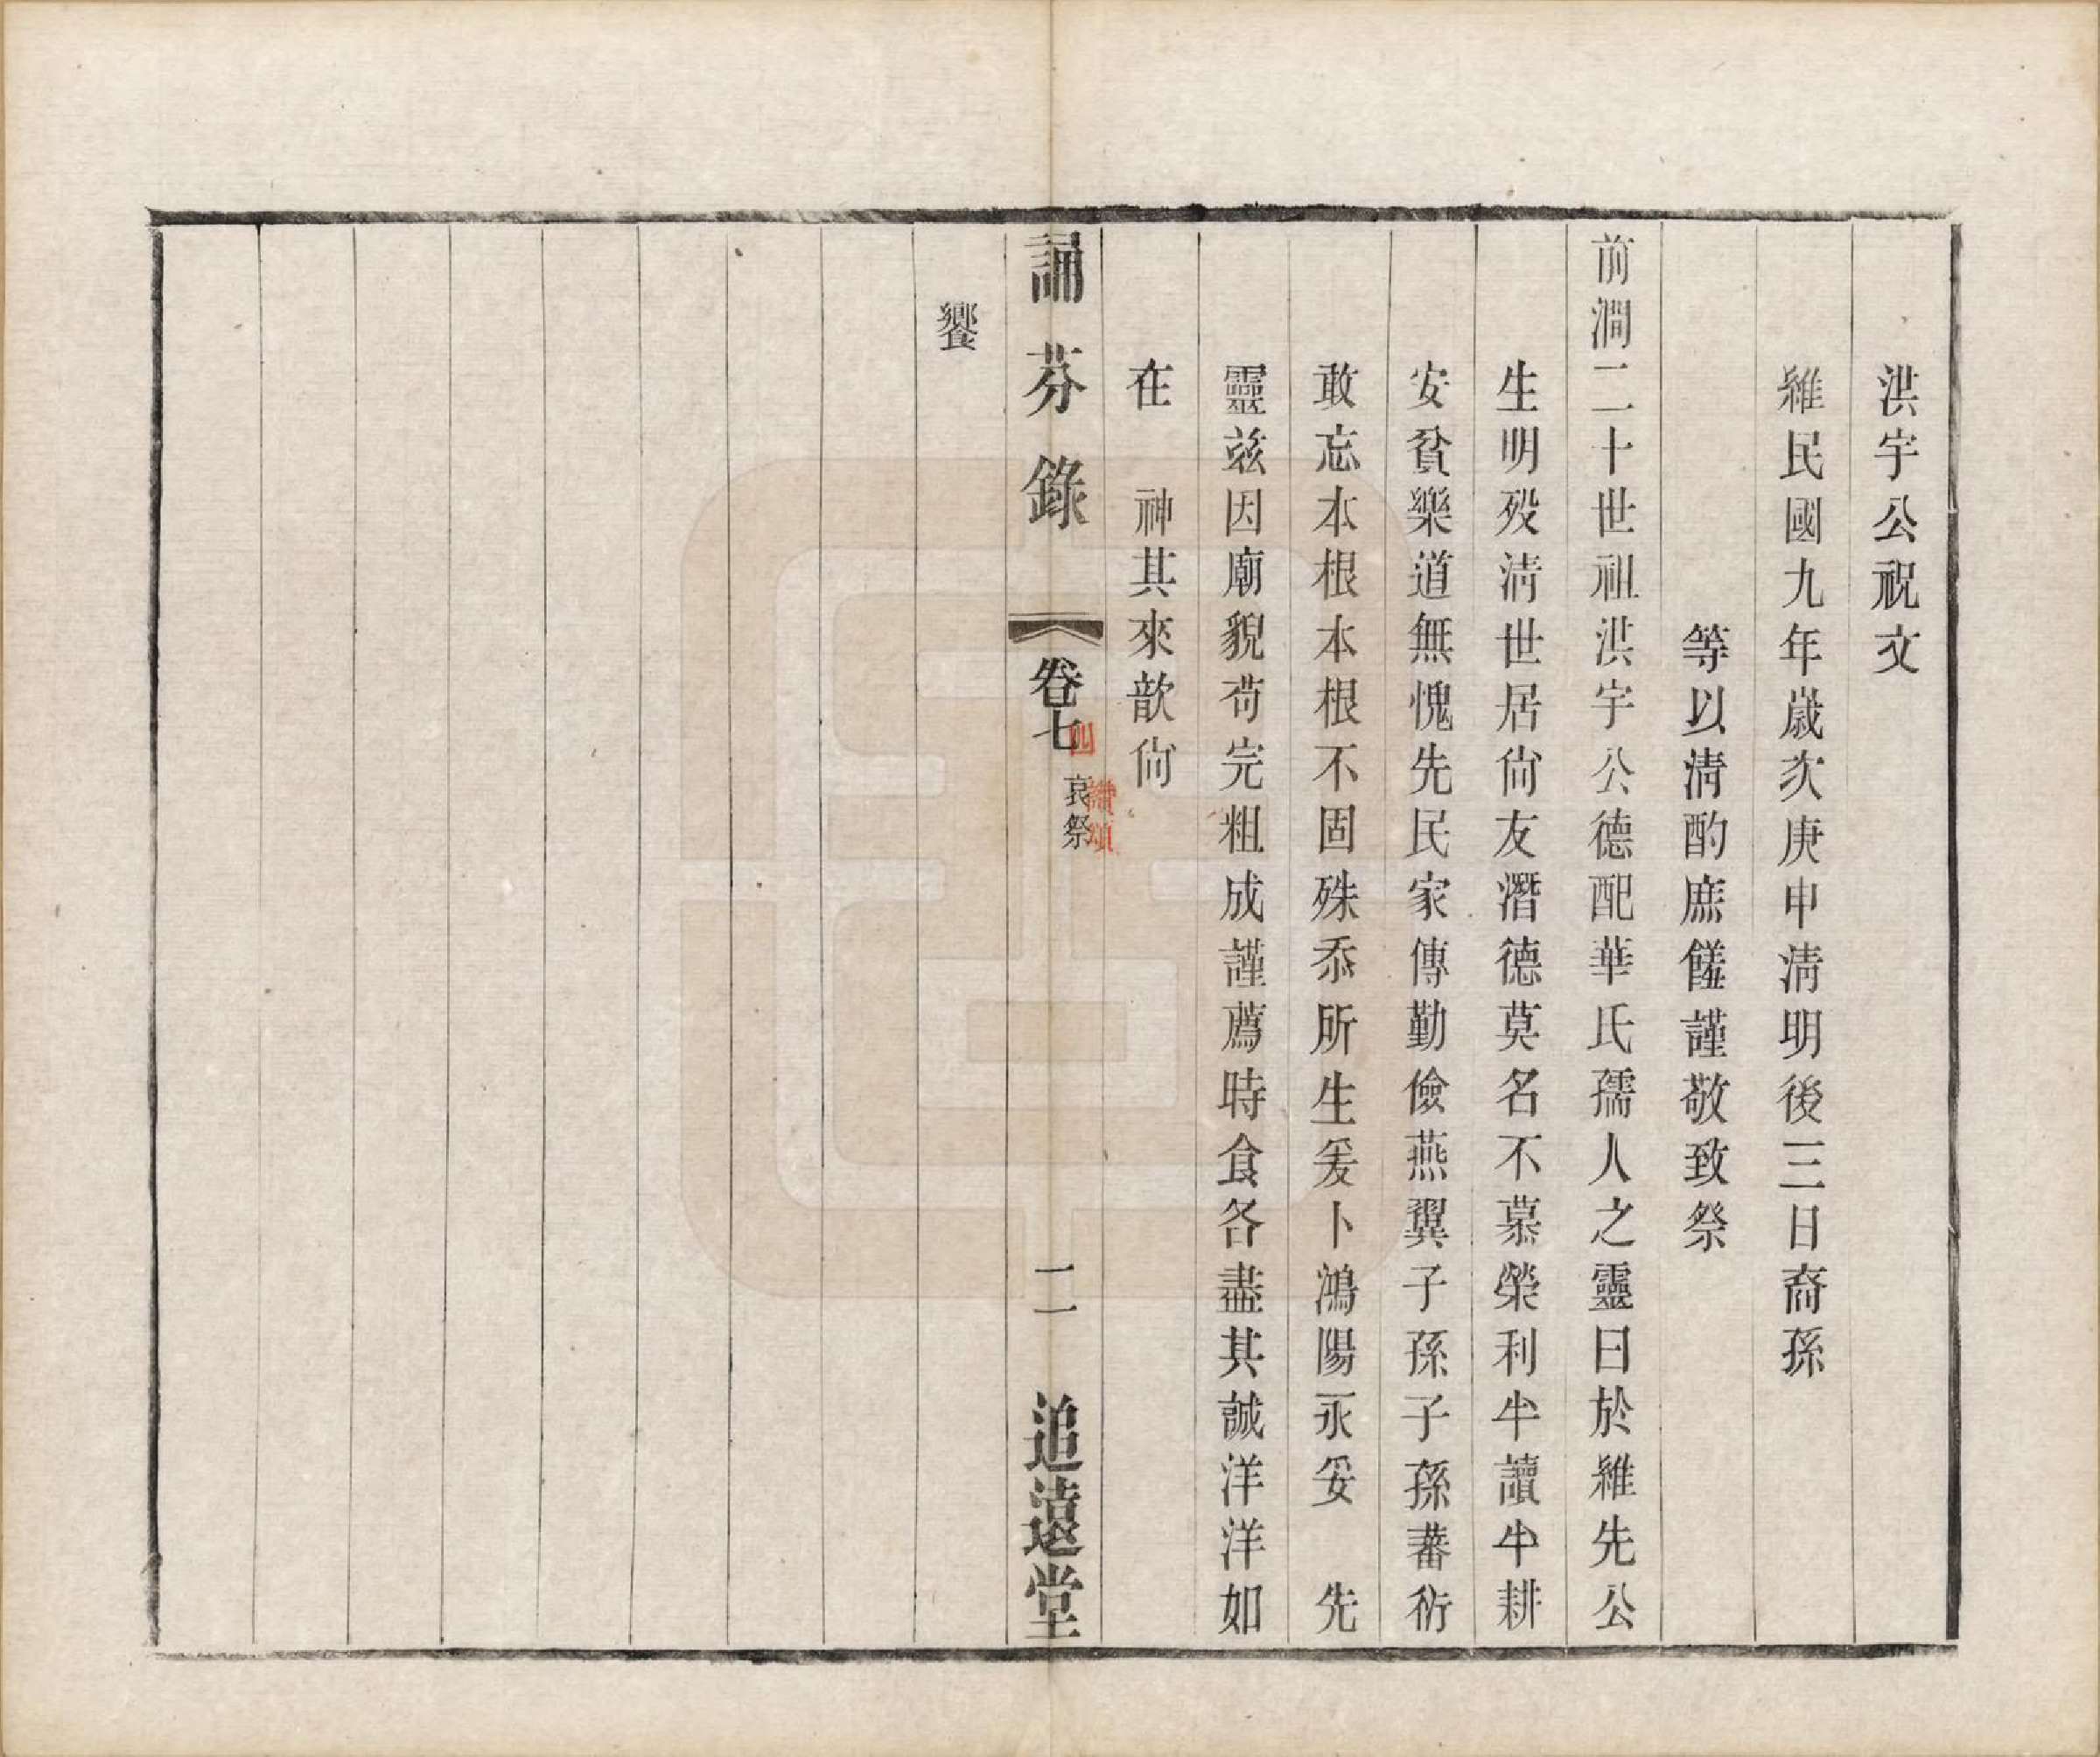 洪宇公祝文
維民國九年歲次庚申淸明後三日裔孫
等以淸酌庶饈謹敬致祭
前澗二十世祖洪宇公德配華氏孺人之靈曰於維先公
生明歿淸世居尙友潛德莫名不慕榮利半讀半耕
安貧樂道無愧先民家傳勤儉燕翼子孫子孫蕃衍
敢忘本根本根不固殊忝所生爰卜鴻陽永妥　先
靈兹因廟貌苟完粗成謹薦時食各盡其誠洋洋如
在　神其來歆尙
誦芬錄　卷七　四　哀祭　讚頌　二　追遠堂
饗